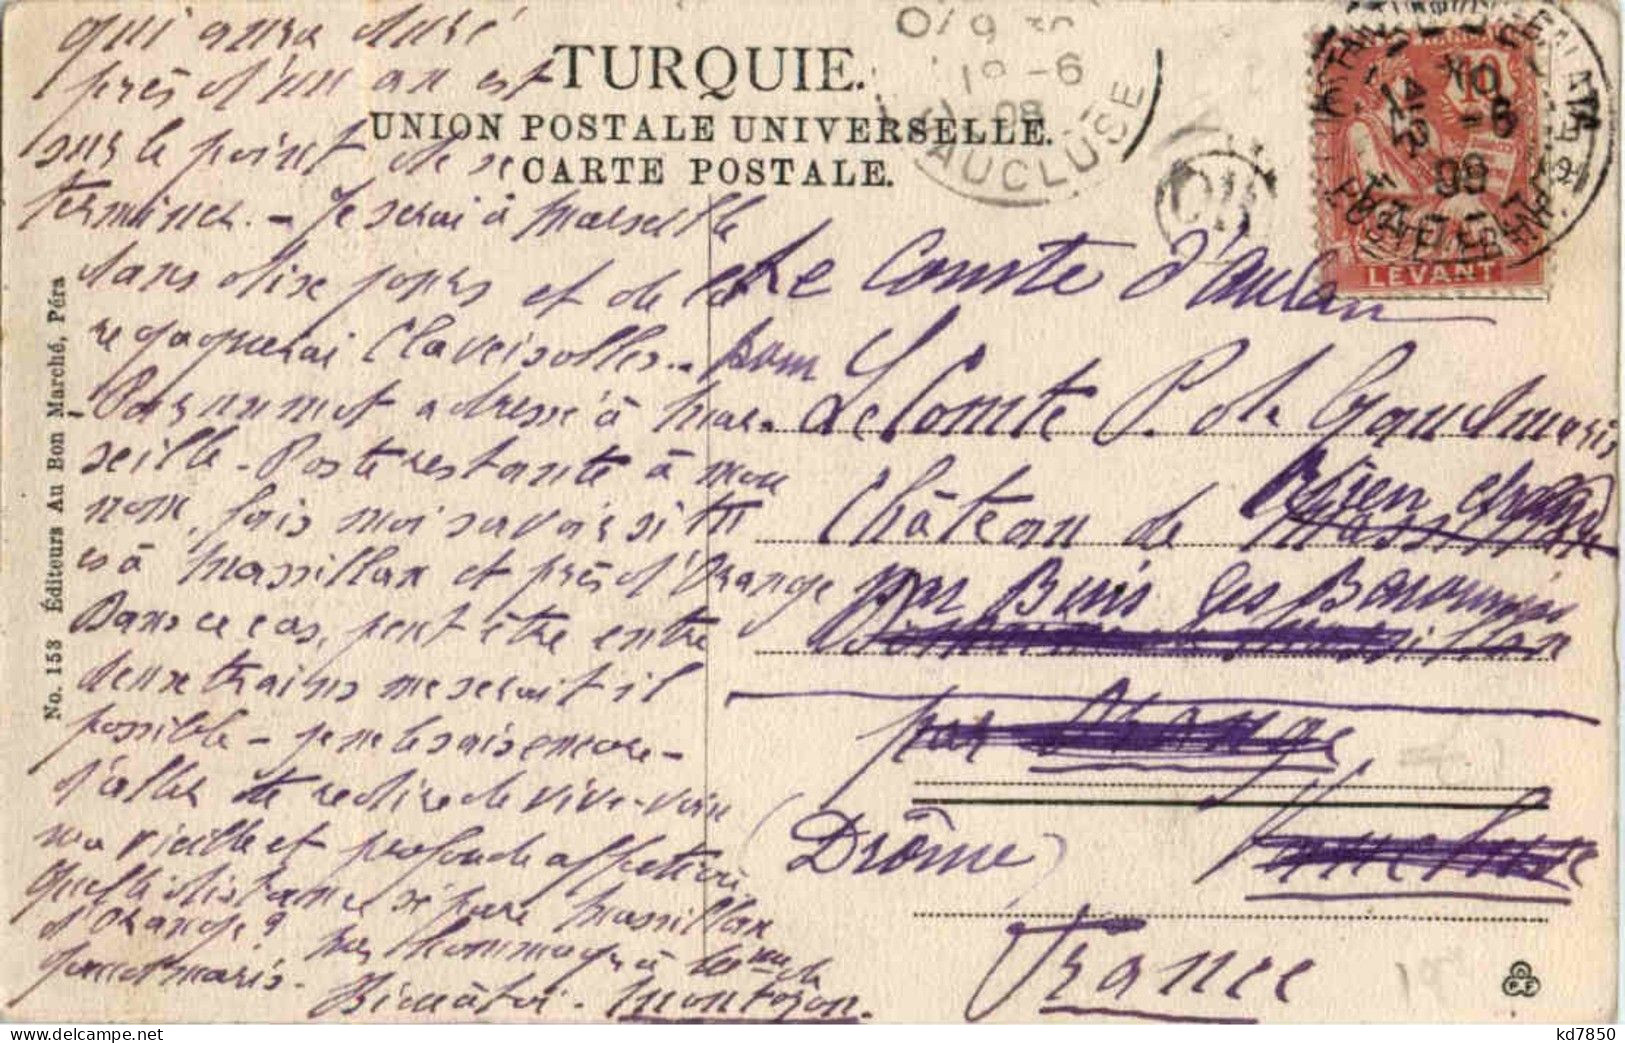 qui aura duré
près d'un an est
sur le point de se
terminer. - Je serai à Marseille
dans dix jours et de là
regagnerai Claveisolles. -
Par un mot adressé à Mar-
seille - Poste restante à mon
nom, fais moi savoir si tu
es à Massillan et près d'Orange
Dans ce cas, peut être entre
deux trains me serait il
possible - je ne le sais encore -
d'aller te redire de vive-voix
ma vieille et profonde affection
Quelle distance sépare Massillan
d'Orange? mes hommages à Mme de
Gaudemaris. Bien à toi. Montozon.
TURQUIE.
UNION POSTALE UNIVERSELLE.
CARTE POSTALE.
No. 153 Éditeurs Au Bon Marché, Péra
VAUCLUSE
10 -6
08
OR
10
LEVANT
Le Comte d'Aulan
pour
Le Comte P. de Gaudemaris
Château de Massillan
par Buis les Baronnies
Domaine de Massillan
par Orange
(Drôme)
Vaucluse
France
kd7850